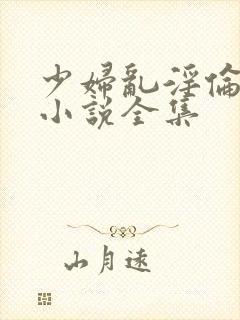 少婦亂淫倫
小說全集
山月遠